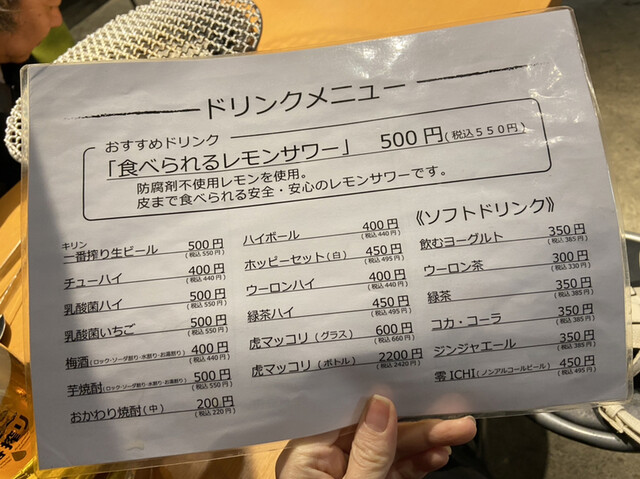 ドリンクメニュー
おすすめドリンク
「食べられるレモンサワー」 500円(税込550円)
防腐剤不使用レモンを使用。
皮まで食べられる安全・安心のレモンサワーです。
キリン
一番搾り生ビール 500円(税込550円)
チューハイ 400円(税込440円)
乳酸菌ハイ 500円(税込550円)
乳酸菌いちご 500円(税込550円)
梅酒(ロック・ソーダ割り・水割り・お湯割り) 400円(税込440円)
芋焼酎(ロック・ソーダ割り・水割り・お湯割り) 500円(税込550円)
おかわり焼酎(中) 200円(税込220円)
ハイボール 400円(税込440円)
ホッピーセット(白) 450円(税込495円)
ウーロンハイ 400円(税込440円)
緑茶ハイ 450円(税込495円)
虎マッコリ(グラス) 600円(税込660円)
虎マッコリ(ボトル) 2200円(税込2420円)
《ソフトドリンク》
飲むヨーグルト 350円(税込385円)
ウーロン茶 300円(税込330円)
緑茶 350円(税込385円)
コカ・コーラ 350円(税込385円)
ジンジャエール 350円(税込385円)
零ICHI(ノンアルコールビール) 450円(税込495円)